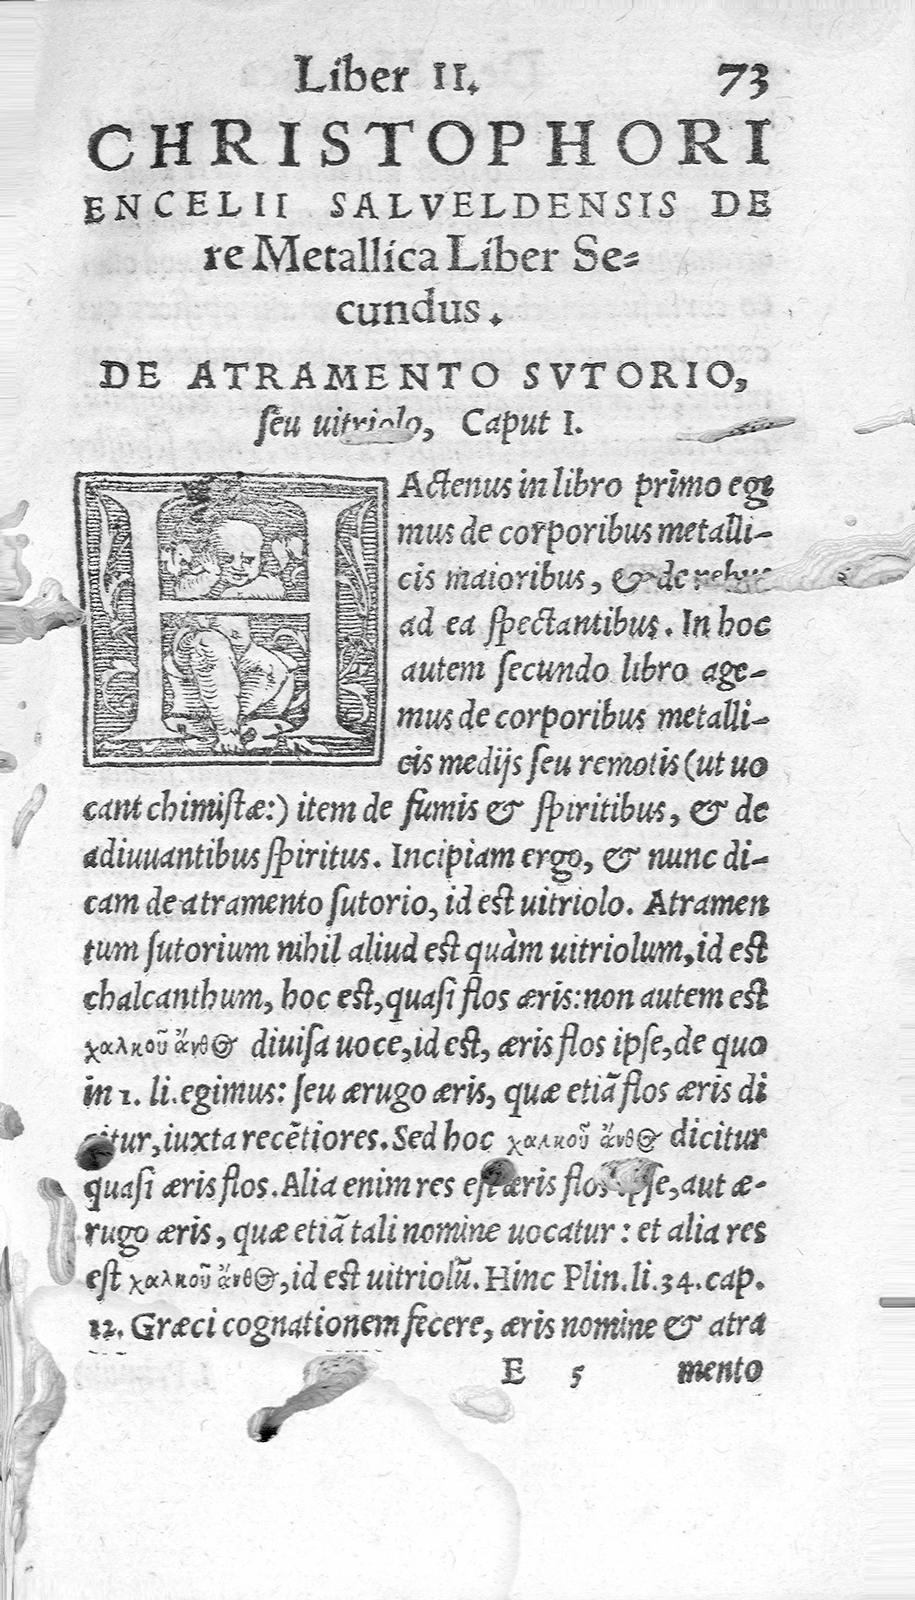 Liber II. 73
CHRISTOPHORI
ENCELII SALVELDENSIS DE
re Metallica Liber Se=
cundus.
DE ATRAMENTO SVTORIO,
seu uitriolo, Caput I.
HActenus in libro primo egi
mus de corporibus metalli-
cis maioribus, & de rebus
ad ea spectantibus. In hoc
autem secundo libro age-
mus de corporibus metalli-
cis medijs seu remotis (ut uo
cant chimistæ:) item de fumis & spiritibus, & de
adiuuantibus spiritus. Incipiam ergo, & nunc di-
cam de atramento sutorio, id est uitriolo. Atramen
tum sutorium nihil aliud est quàm uitriolum, id est
chalcanthum, hoc est, quasi flos æris: non autem est
χαλκοῦ ἄνθος diuisa uoce, id est, æris flos ipse, de quo
in 1. li. egimus: seu ærugo æris, quæ etiã flos æris di
citur, iuxta recẽtiores. Sed hoc χαλκοῦ ἄνθος dicitur
quasi æris flos. Alia enim res est æris flos ipse, aut æ-
rugo æris, quæ etiã tali nomine uocatur: et alia res
est χαλκοῦ ἄνθος, id est uitriolũ. Hinc Plin. li. 34. cap.
12. Græci cognationem fecere, æris nomine & atra
E 5 mento